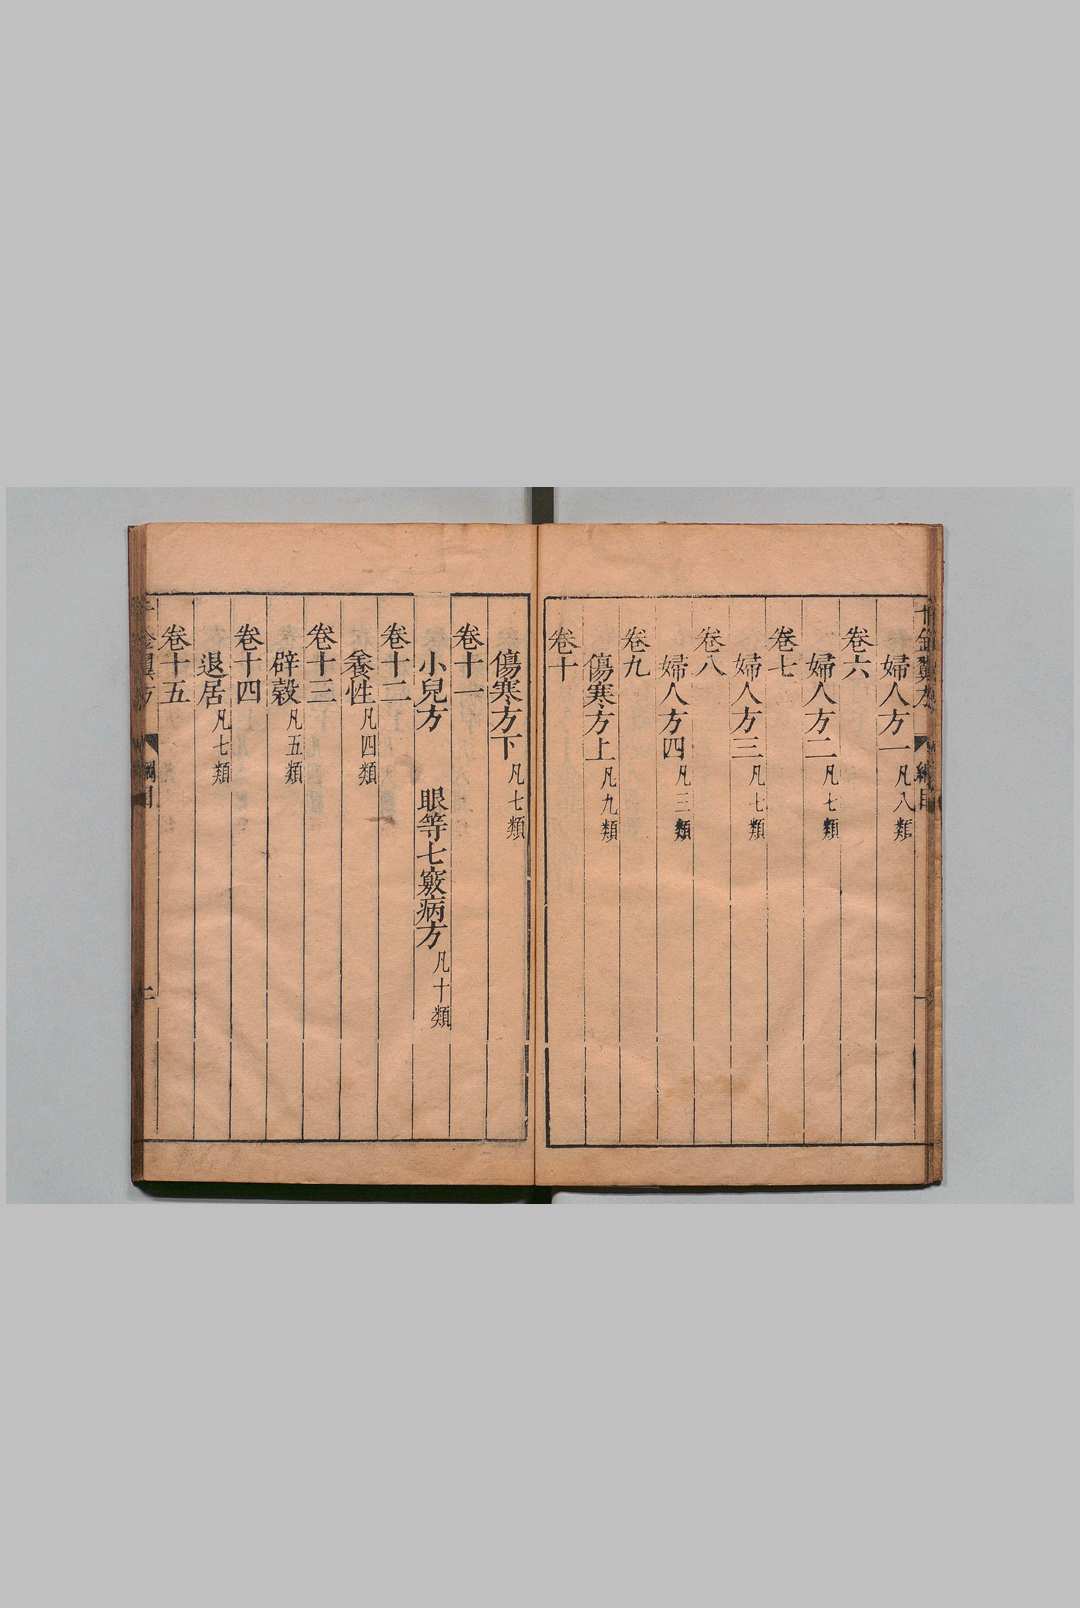 婦人方一凡八類
卷六
婦人方二凡七類
卷七
婦人方三凡七類
卷八
婦人方四凡三類
卷九
傷寒方上凡九類
卷十
傷寒方下凡七類
卷十一
小兒方 眼等七竅病方凡十類
卷十二
養性凡四類
卷十三
辟穀凡五類
卷十四
退居凡七類
卷十五
千金翼方 綱目 二